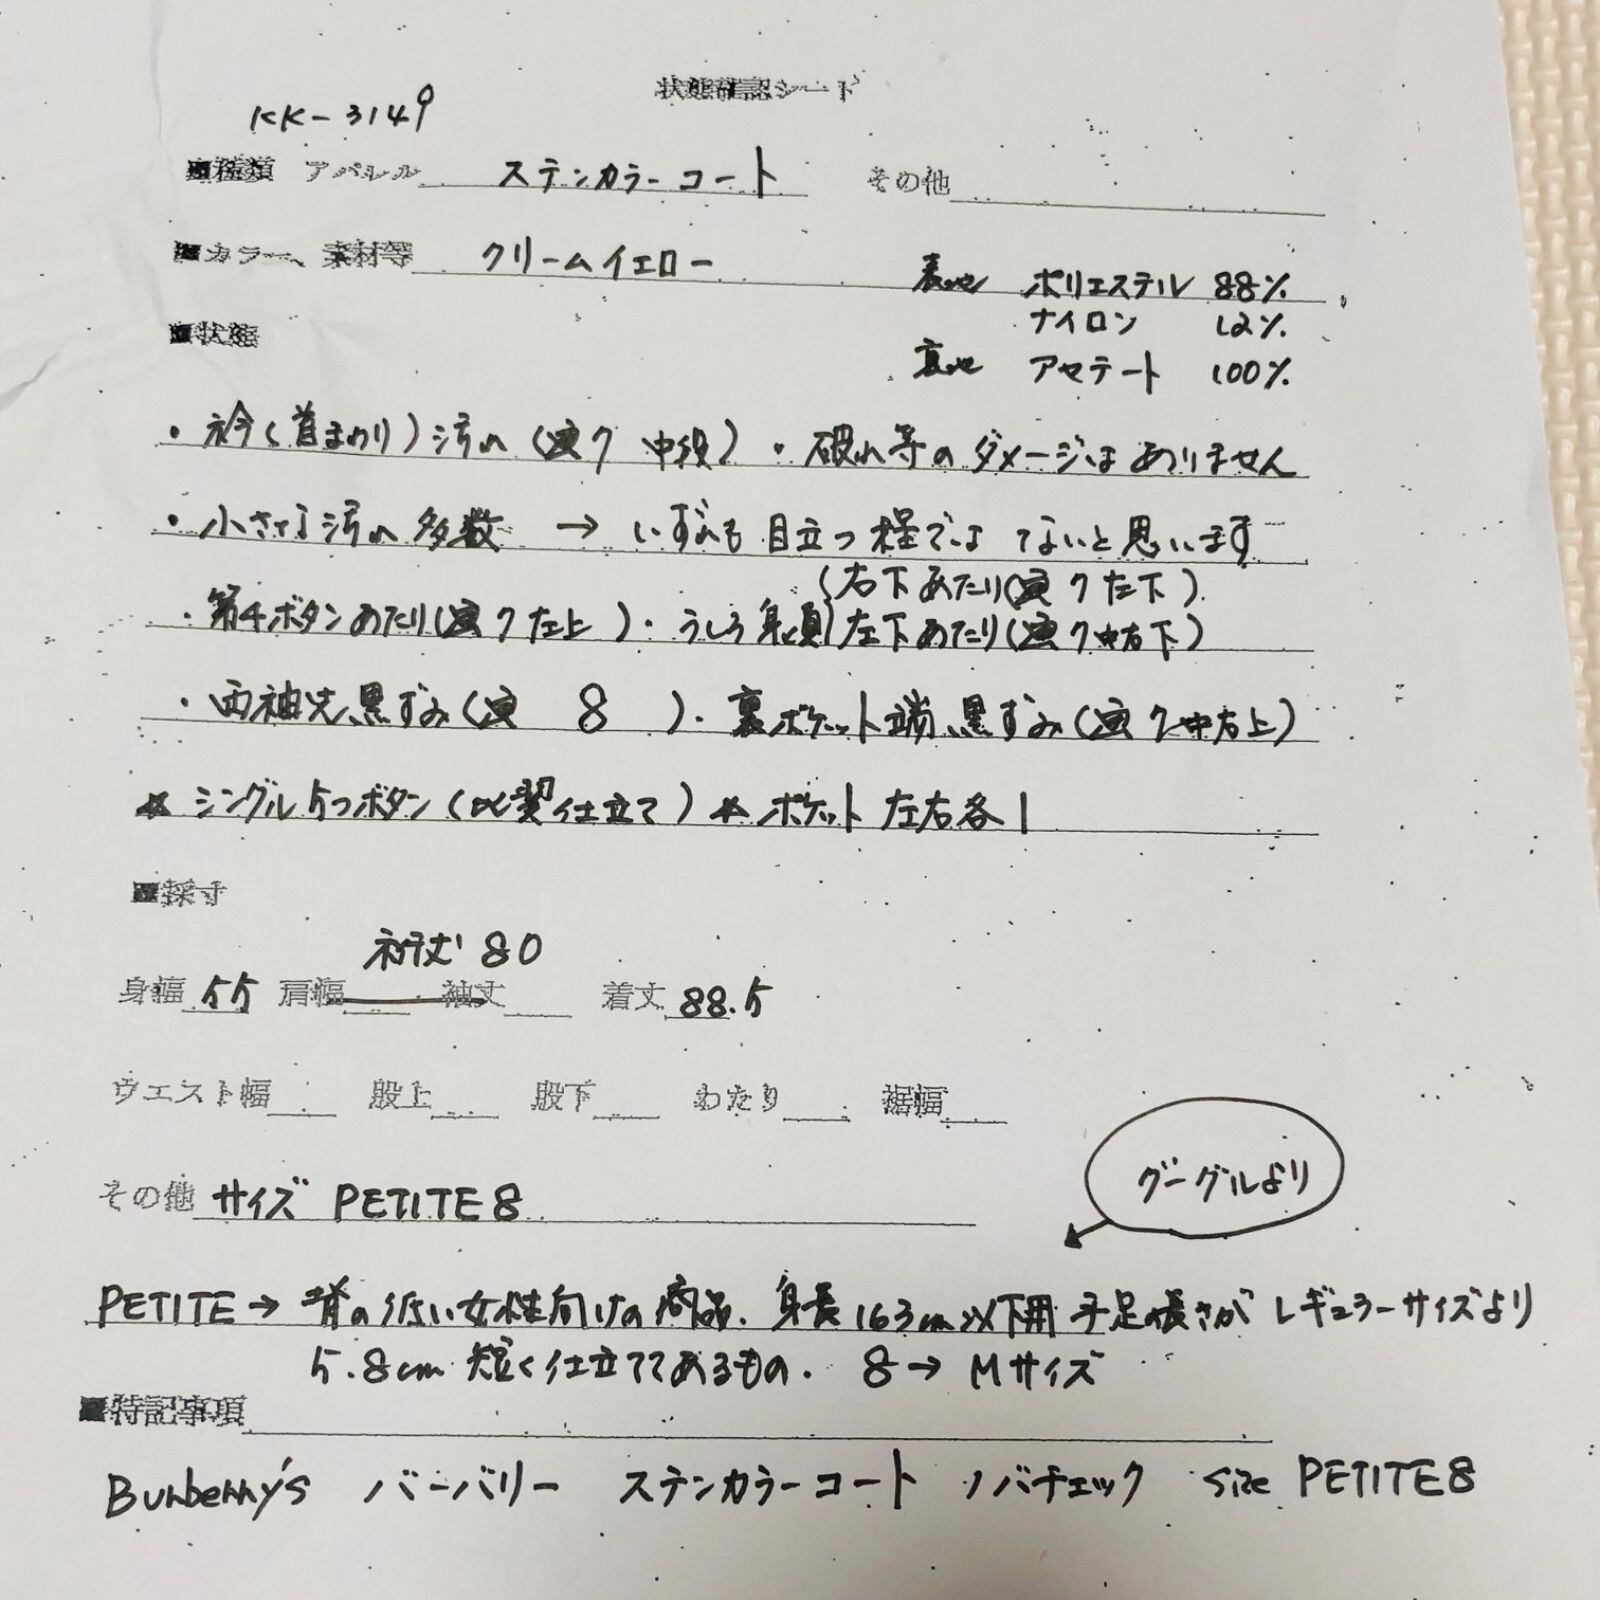 状態確認シート
KK-3149
■種類 アパレル ステンカラーコート その他
■カラー、素材等 クリームイエロー 表地 ポリエステル 88%
ナイロン 12%
■状態
裏地 アセテート 100%
・衿(首まわり)汚れ(画7 中段)・破れ等のダメージはありません
・小さな汚れ多数 → いずれも目立つ程ではないと思います
(右下あたり(画7左下)
・第4ボタンあたり(画7左上)・うしろ身頃 左下あたり(画7中右下)
・両袖先黒ずみ(画 8 )・裏ポケット端黒ずみ(画7中右上)
☆シングル5つボタン(比翼仕立て)☆ポケット 左右各1
■採寸
裄丈 80
身幅 55 肩幅 袖丈 着丈 88.5
ウエスト幅 股上 股下 わたり 裾幅
グーグルより
その他 サイズ PETITE8
PETITE→ 背の低い女性向けの商品.身長163cm以下用 手足長さがレギュラーサイズより
5.8cm短く仕立ててあるもの. 8→ Mサイズ
■特記事項
Burberry's バーバリー ステンカラーコート ノバチェック size PETITE8